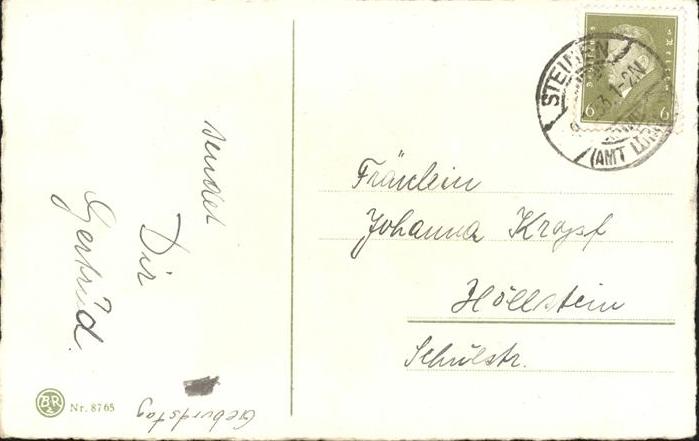 sendet
Dir
Gertrud.
Geburtstag
Fräulein
Johanna Kropf
Höllstein
Schulstr.
STEINEN
1-2N
(AMT LÖRR
6 6
BR
Nr. 8765